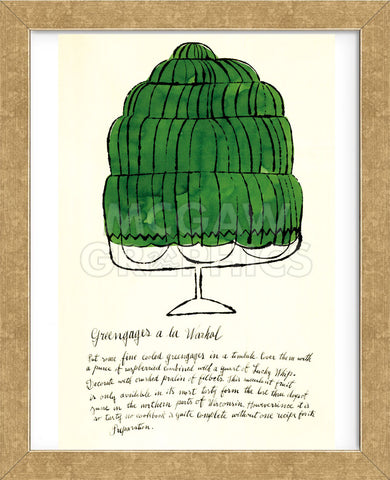 McGAW
GRAPHICS
Greengages a la Warhol
Put some fine cooled greengages in a timbale. Cover them with
a puree of raspberries combined with a quart of Lucky Whip.
Decorate with crushed pralin of filberts. This succulent fruit
is only available in its most tasty form the last three days of
June in the northern parts of Wisconsin. However since it is
so tasty no cookbook is quite complete without one recipe for its
Preparation.